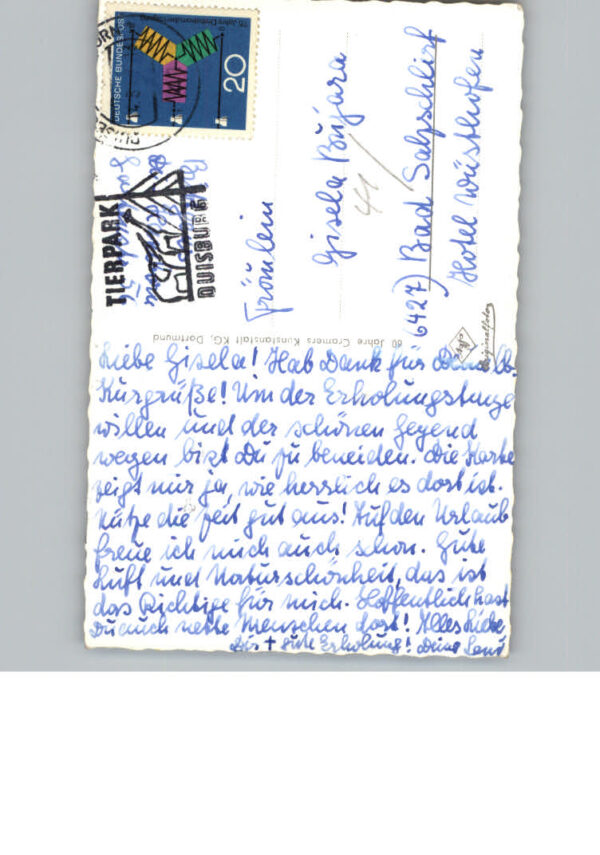 DEUTSCHE BUNDESPOST
20
TIERPARK
DUISBURG
Fräulein
Gisela Bujara
41/
6427) Bad Salzschlirf
Hotel Wüsthofen
60 Jahre Cramers Kunstanstalt KG, Dortmund
Originalfoto
Liebe Gisela! Hab Dank für Deine lb.
Kurgrüße! Um der Erholungstage
willen und der schönen Gegend
wegen bist Du zu beneiden. Die Karte
zeigt mir ja, wie herrlich es dort ist.
Nütze die Zeit gut aus! Auf den Urlaub
freue ich mich auch schon. Gute
Luft und Naturschönheit, das ist
das Richtige für mich. Hoffentlich hast
Du auch nette Menschen dort! Alles Liebe
Dir + gute Erholung! Deine